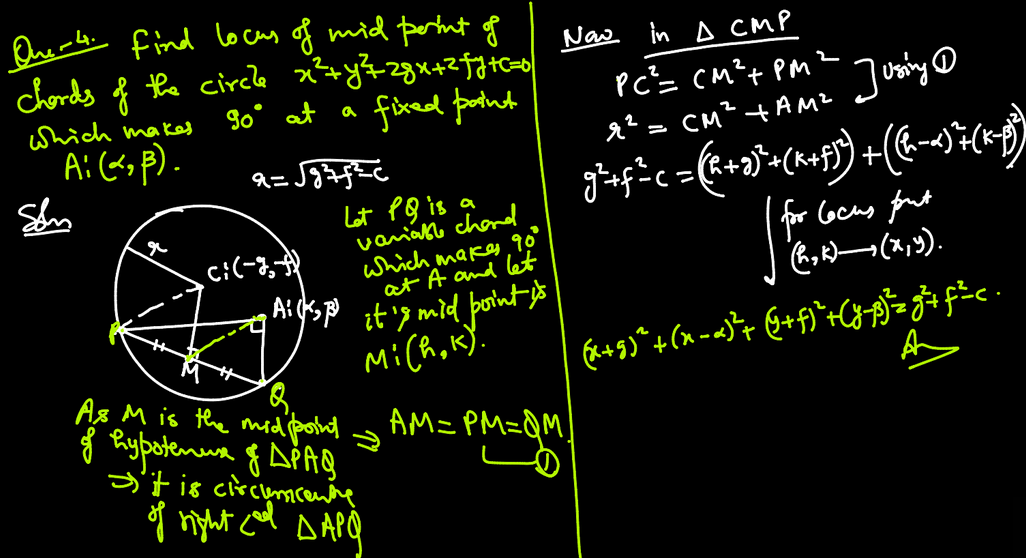 Que-4. Find locus of mid point of
chords of the circle x²+y²+2gx+2fy+c=0
which makes 90° at a fixed point
A:(α,β).
r=√g²+f²-c
Soln
r
C:(-g,-f)
A:(α,β)
P
M
Q
Let PQ is a
variable chord
which makes 90°
at A and let
it's mid point is
M:(h,k).
As M is the midpoint
of hypotenuse of ΔPAQ
⇒ it is circumcentre
of right ∠ed ΔAPQ
⇒ AM = PM = QM.
①
Now in Δ CMP
PC² = CM² + PM²
r² = CM² + AM²
] Using ①
g²+f²-c = ((h+g)²+(k+f)²) + ((h-α)²+(k-β)²)
for locus put
(h,k) → (x,y).
(x+g)² + (x-α)² + (y+f)² + (y-β)² = g²+f²-c.
A